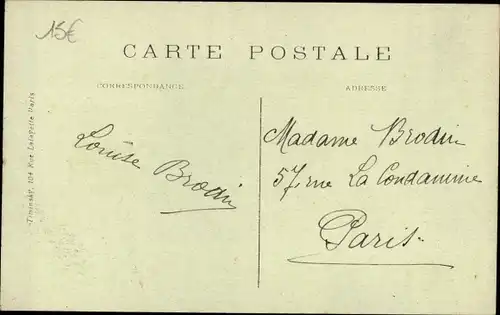 15€
CARTE POSTALE
CORRESPONDANCE
ADRESSE
Louise
Brodin
Madame Brodin
57, rue La Condamine
Paris.
104 Rue Lafayette Paris